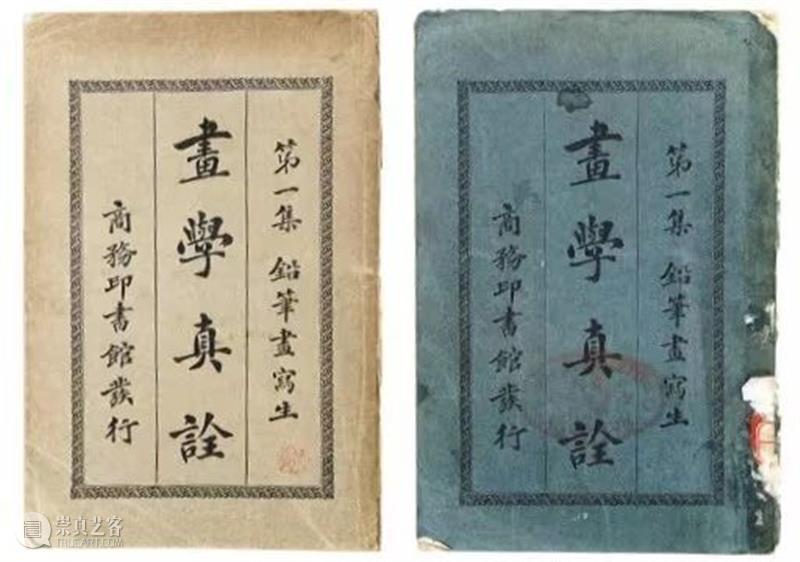 第一集 鉛筆畫寫生
畫學真詮
商務印書館發行
第一集 鉛筆畫寫生
畫學真詮
商務印書館發行
崇真艺客
TRUEART.COM